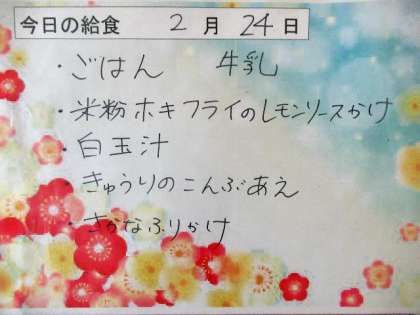 今日の給食 2月24日
・ごはん 牛乳
・米粉ホキフライのレモンソースかけ
・白玉汁
・きゅうりのこんぶあえ
・さかなふりかけ